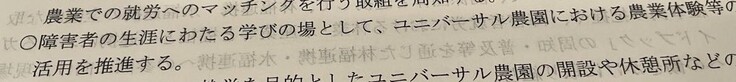 農業での就労へのマッチングを行う取組を周知
〇障害者の生涯にわたる学びの場として、ユニバーサル農園における農業体験等の
活用を推進する。
を目的としたユニバーサル農園の開設や休憩所などの